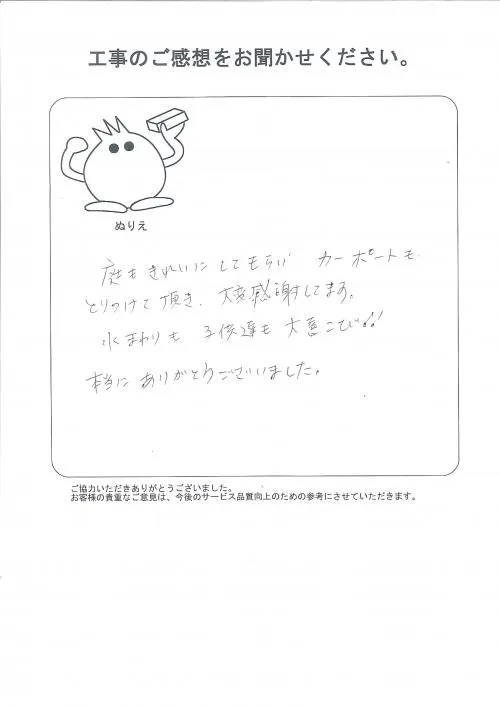 工事のご感想をお聞かせください。
ぬりえ
庭もきれいにしてもらい カーポートも
とりつけて頂き、大変感謝してます。
水まわりも 子供達も 大喜こび!!
本当に ありがとうございました。
ご協力いただきありがとうございました。
お客様の貴重なご意見は、今後のサービス品質向上のための参考にさせていただきます。